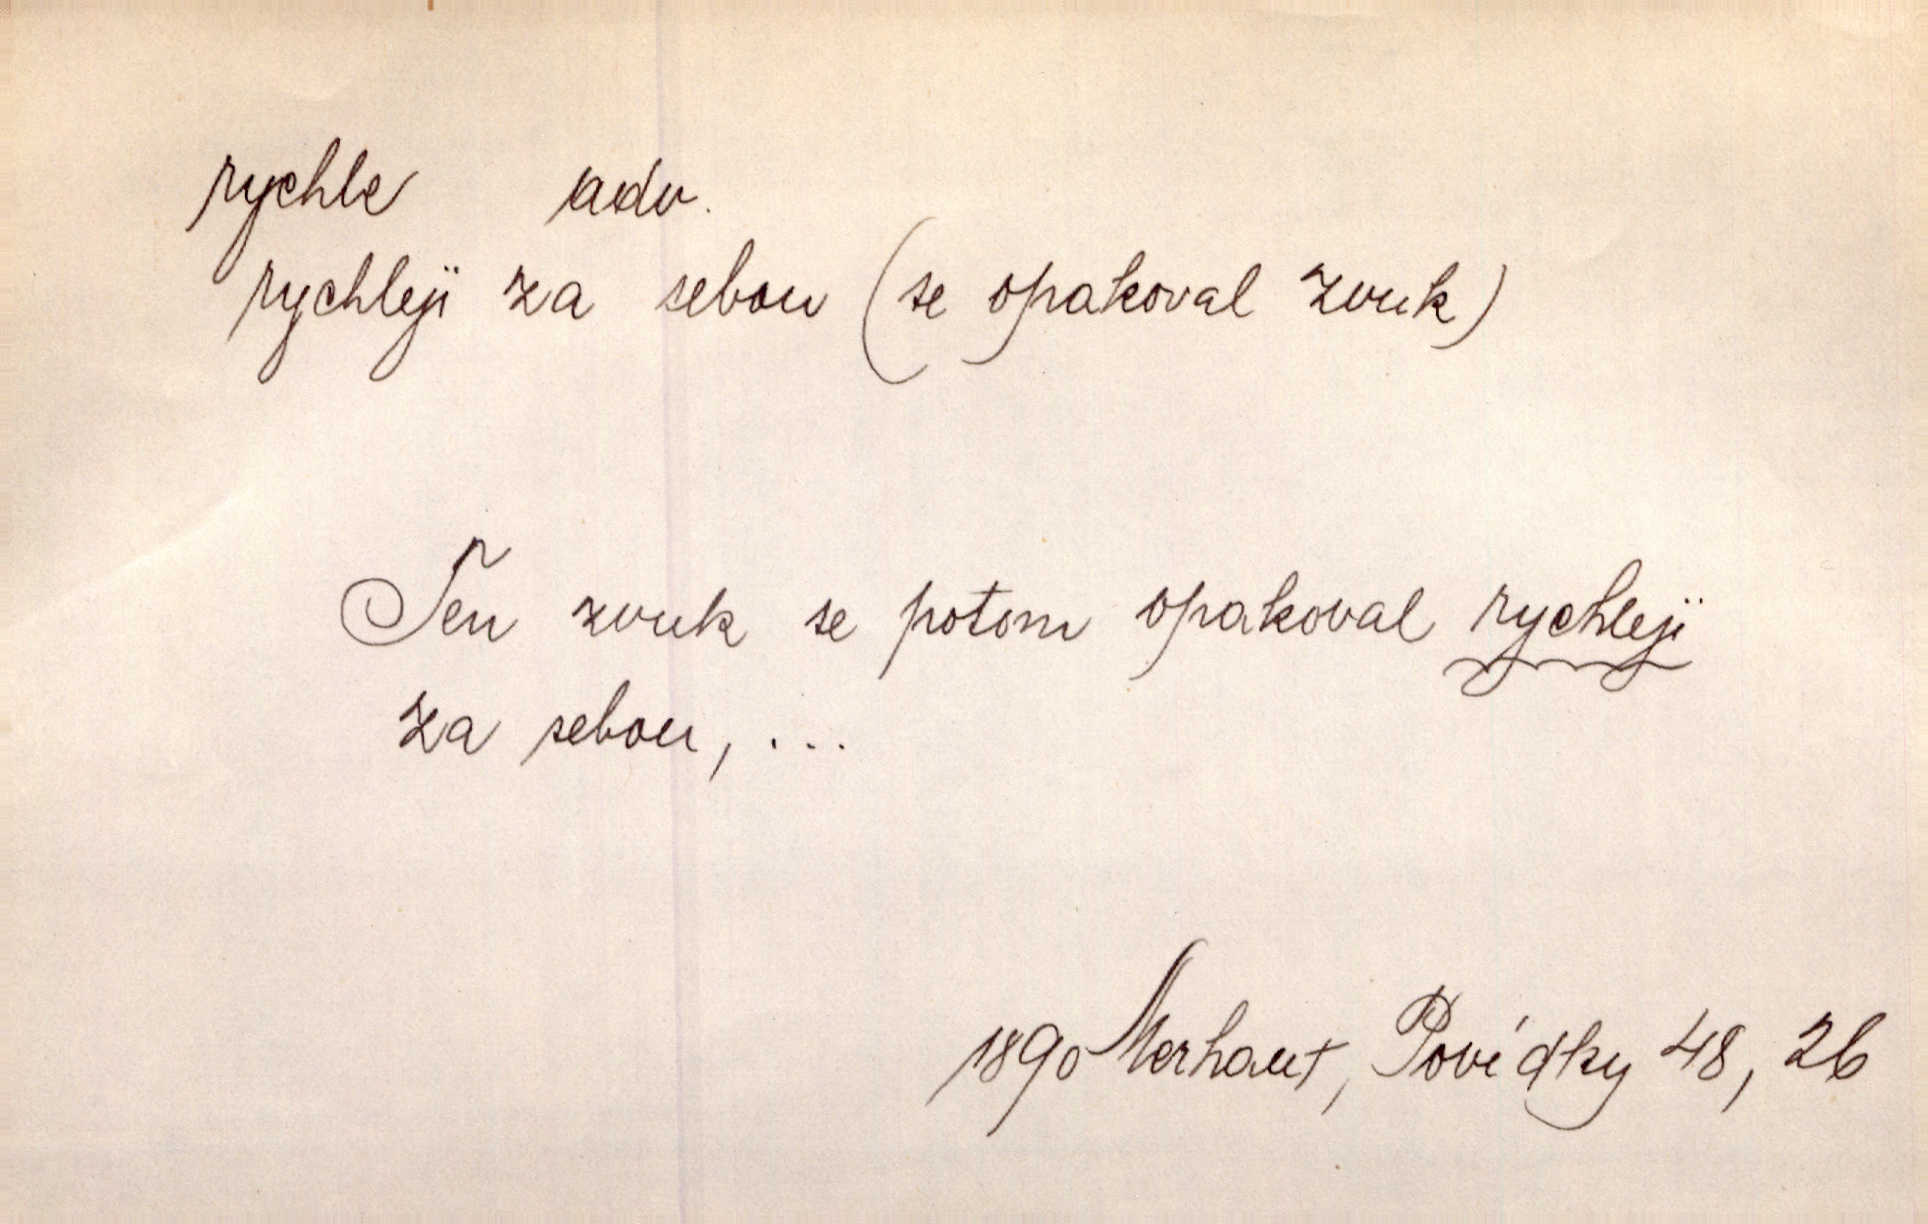 rychle adv.
rychleji za sebou (se opakoval zvuk)
Ten zvuk se potom opakoval rychleji
za sebou, ...
1890 Merhaut, Povídky 48, 26